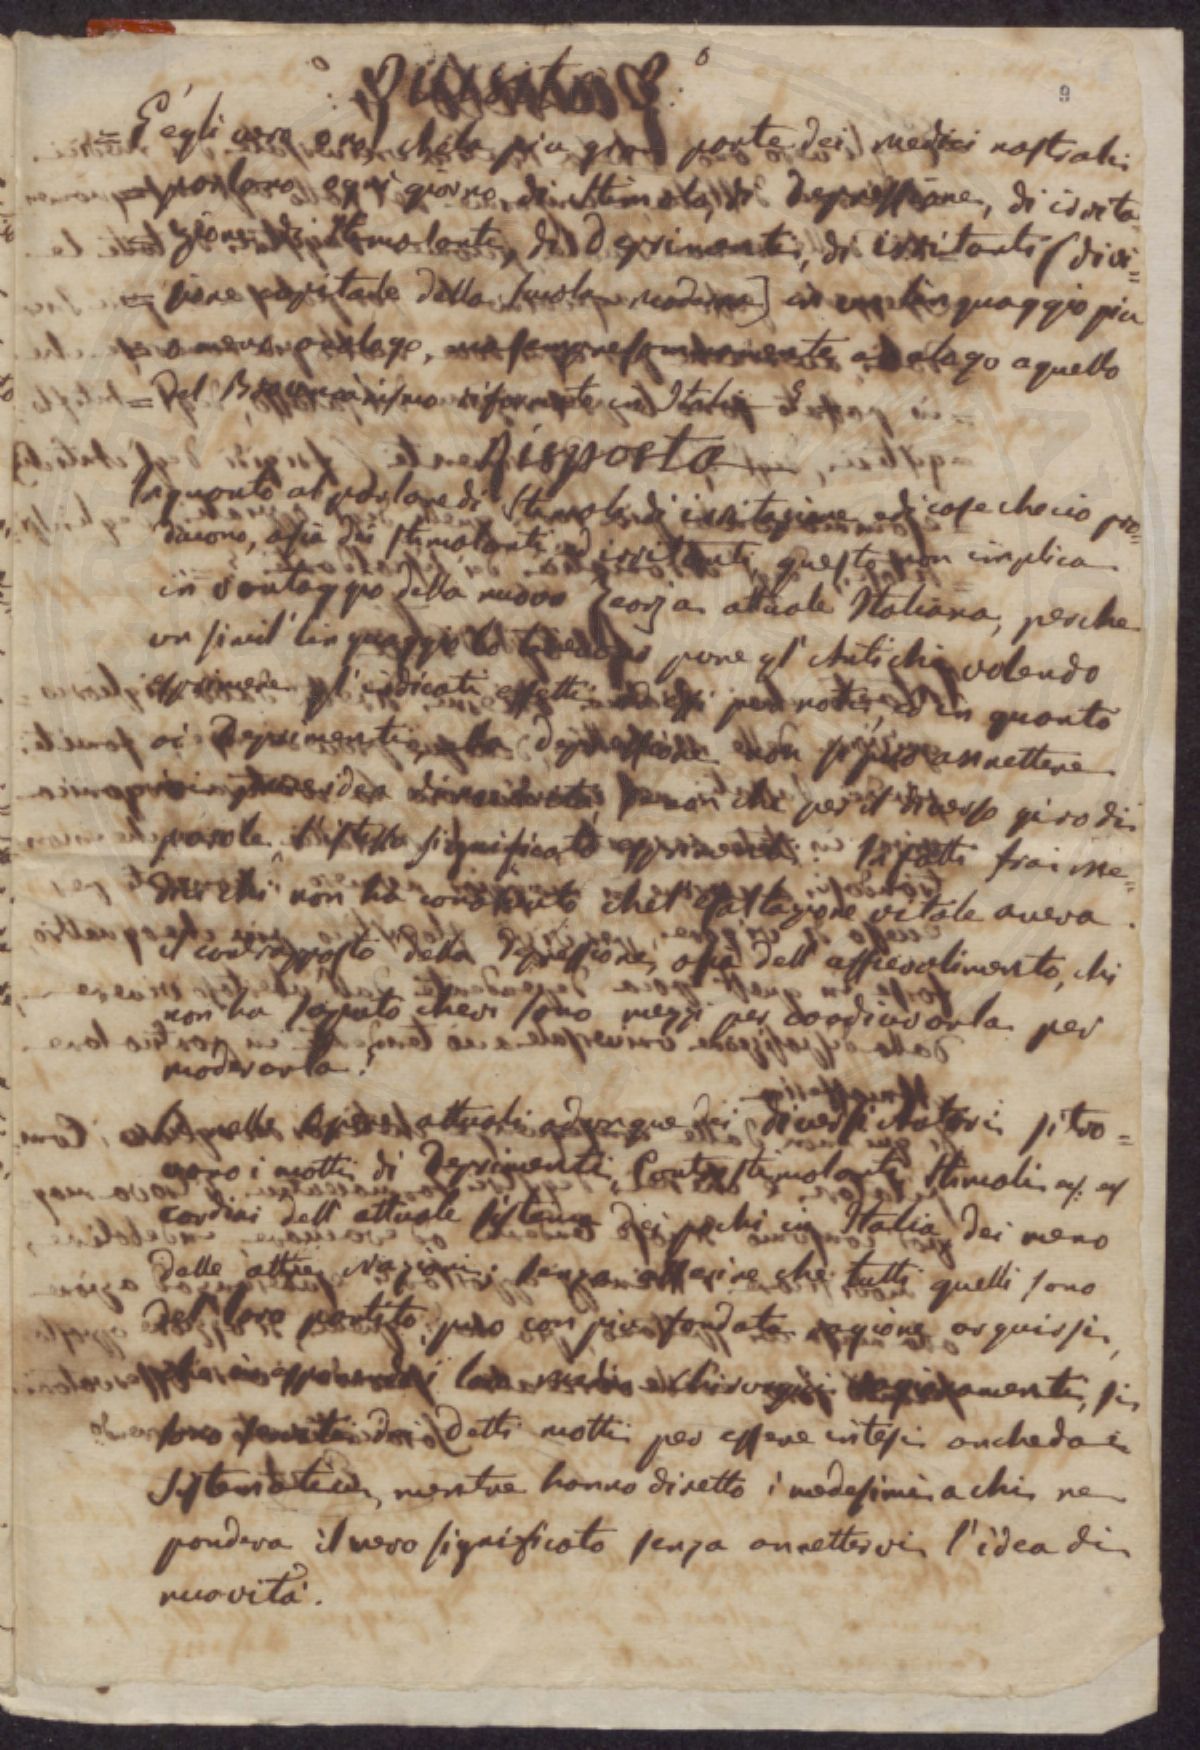 9
= E' egli vero che la piu gran parte dei medici nostrali
parlano ogni giorno di stimolo, di depressione, di irrita
zione, di stimolanti, di deprimenti, di irritanti (divi=
= sione capitale della scuola moderna) un linguaggio piu
o meno analogo, analogo a quello
= del Brownianismo riformato in Italia
Risposta
In quanto al parlare di stimolo di irritazione e di cose che cio pro=
ducono, osia di stimolanti ed irritanti, questo non implica
in vantaggio della nuova Teoria attuale Italiana, perche
un simil linguaggio lo pure gl' Antichi volendo
esprimere gl' indicati effetti ad essi pur noti, ed in quanto
ai Deprimenti, alla depressione non si puo annettere
idea di novità se non che per il diverso giro di
parole l'istesso significato esprimenti. Infatti frai me=
dici chi non ha conosciuto che l' esaltazione vitale aveva
il contrapposto della depressione, osia dell' affievolimento, chi
non ha saputo che vi sono mezzi per coadiuvarla per
moderarla?
In quelle opere attuali adunque dei diversi Autori si tro=
vano i motti di Deprimenti, Controstimolanti, Stimoli
cardini dell' attuale sistema dei pochi in Italia dei meno
delle altre Nazioni: senza asserire che tutti quelli sono
del loro partito, puo con piu fondata ragione arguirsi,
loro medici e Chirurgici ragionamenti, si
sono serviti dei detti motti per essere intesi anche dai
sistematici, mentre hanno diretto i medesimi a chi ne
pondera il vero significato senza annettervi l'idea di
nuovità.